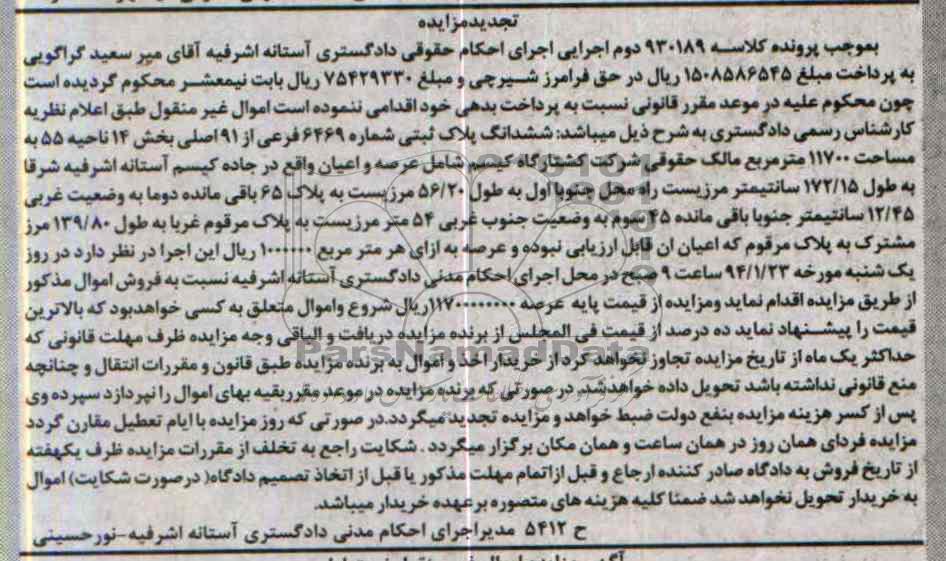 تجدیدمزایده
بموجب پرونده کلاسه ۹۳۰۱۸۹ دوم اجرایی اجرای احکام حقوقی دادگستری آستانه اشرفیه آقای میر سعید گراکویی
به پرداخت مبلغ ۱۵۰۸۵۸۶۵۴۵ ریال در حق فرامرز شیرچی و مبلغ ۷۵۴۲۹۳۳۰ ریال بابت نیمعشر محکوم گردیده است
چون محکوم علیه در موعد مقرر قانونی نسبت به پرداخت بدهی خود اقدامی ننموده است اموال غیر منقول طبق اعلام نظریه
کارشناس رسمی دادگستری به شرح ذیل میباشد: ششدانگ پلاک ثبتی شماره ۶۴۶۹ فرعی از ۹۱ اصلی بخش ۱۴ ناحیه ۵۵ به
مساحت ۱۱۷۰۰ مترمربع مالک حقوقی شرکت کشتارگاه کیسم شامل عرصه و اعیان واقع در جاده کیسم آستانه اشرفیه شرقا
به طول ۱۷۲/۱۵ سانتیمتر مرزیست راه محل جنوبا اول به طول ۵۶/۲۰ مرزیست به پلاک ۶۵ باقی مانده دوما به وضعیت غربی
۱۲/۴۵ سانتیمتر جنوبا باقی مانده ۴۵ سوم به وضعیت جنوب غربی ۵۴ متر مرزیست به پلاک مرقوم غربا به طول ۱۳۹/۸۰ مرز
مشترک به پلاک مرقوم که اعیان ان قابل ارزیابی نبوده و عرصه به ازای هر متر مربع ۱۰۰۰۰۰۰ ریال این اجرا در نظر دارد در روز
یک شنبه مورخه ۹۴/۱/۲۳ ساعت ۹ صبح در محل اجرای احکام مدنی دادگستری آستانه اشرفیه نسبت به فروش اموال مذکور
از طریق مزایده اقدام نماید ومزایده از قیمت پایه عرصه ۱۱۷۰۰۰۰۰۰۰۰ ریال شروع واموال متعلق به کسی خواهدبود که بالاترین
قیمت را پیشنهاد نماید ده درصد از قیمت فی المجلس از برنده مزایده دریافت و الباقی وجه مزایده ظرف مهلت قانونی که
حداکثر یک ماه از تاریخ مزایده تجاوز نخواهد کرد از خریدار اخذ و اموال به برنده مزایده طبق قانون و مقررات انتقال و چنانچه
منع قانونی نداشته باشد تحویل داده خواهدشد. در صورتی که برنده مزایده در موعد مقرر بقیه بهای اموال را نپردازد سپرده وی
پس از کسر هزینه مزایده بنفع دولت ضبط خواهد و مزایده تجدید میگردد.در صورتی که روز مزایده با ایام تعطیل مقارن گردد
مزایده فردای همان روز در همان ساعت و همان مکان برگزار میگردد . شکایت راجع به تخلف از مقررات مزایده ظرف یکهفته
از تاریخ فروش به دادگاه صادر کننده ارجاع و قبل ازاتمام مهلت مذکور یا قبل از اتخاذ تصمیم دادگاه( درصورت شکایت) اموال
به خریدار تحویل نخواهد شد ضمنا کلیه هزینه های متصوره برعهده خریدار میباشد.
ح ۵۴۱۲ مدیراجرای احکام مدنی دادگستری آستانه اشرفیه-نورحسینی